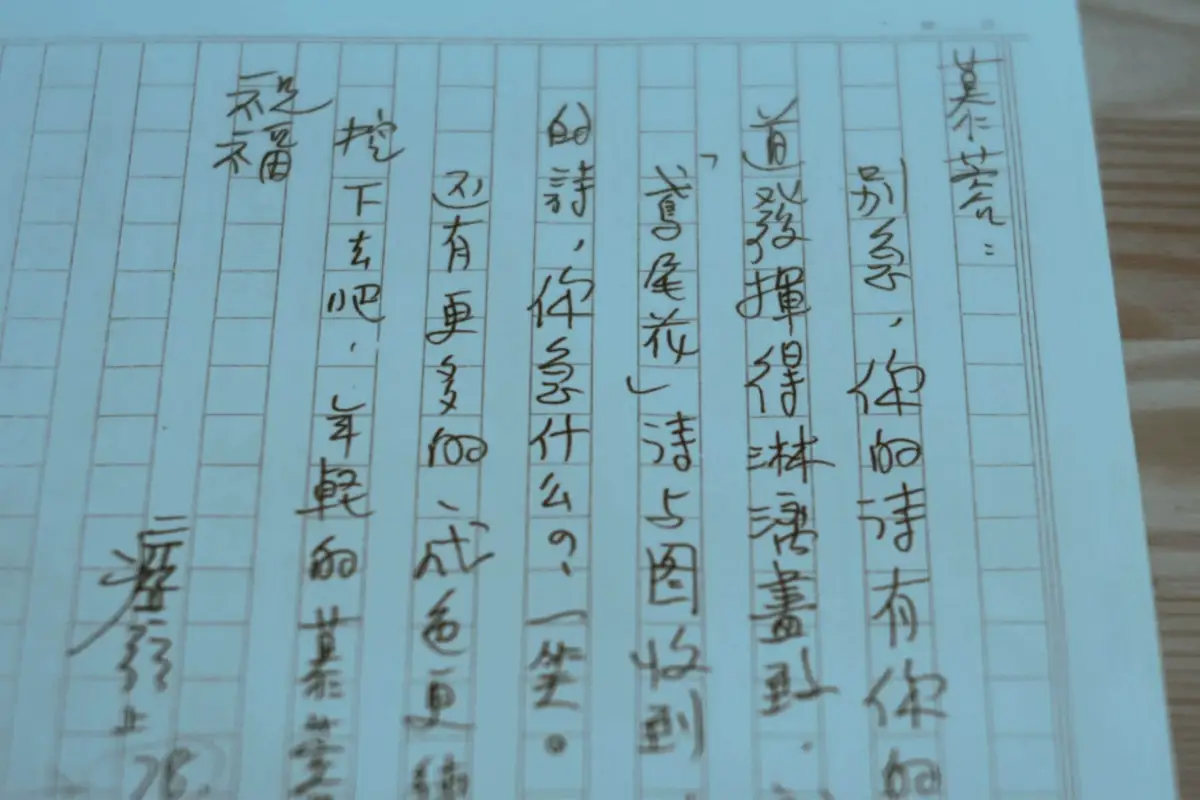 慕蓉:
別急,你的詩有你的
道發揮得淋漓盡致、
「鳶尾花」詩与图收到
的詩,你急什么?一笑。
还有更多的、成色更
挖下去吧,年輕的慕蓉
祝福
瘂弦上
78.